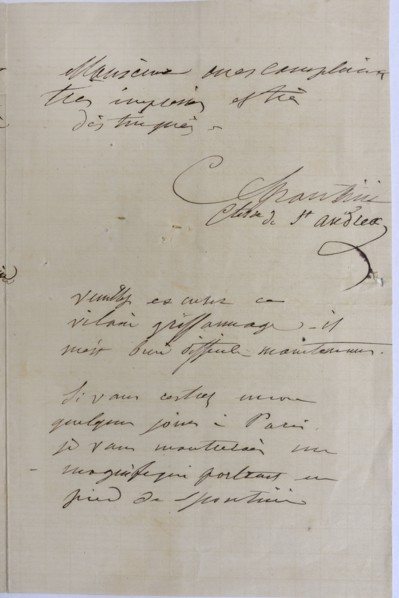 Monsieur mes complimen
très empressés et très
distingués.
C Spontini
Ctesse de St Andrea
veuillez excuser ce
vilain griffonnage - il
m'est bien difficile maintenant.
Si vous restez encore
quelques jours à Paris.
je vous montrerais un
magnifique portrait en
pied de Spontini